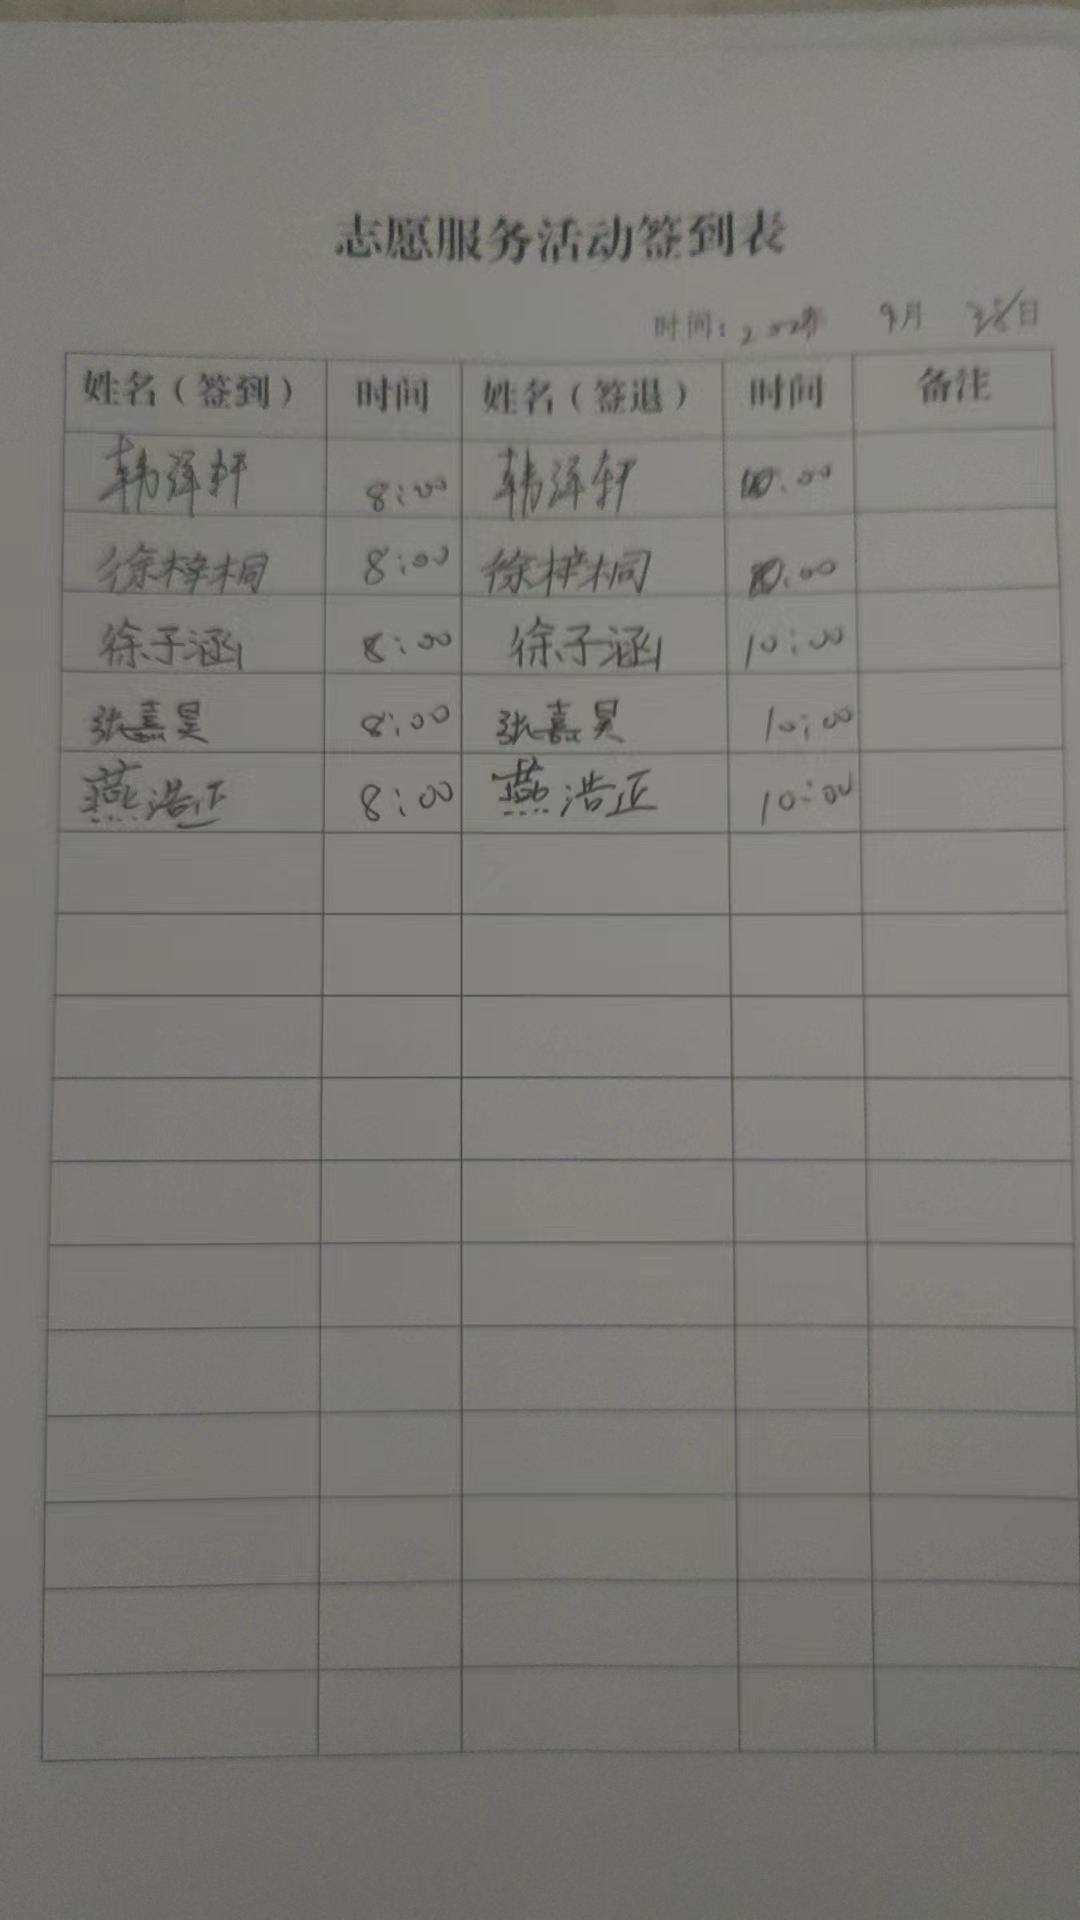 志愿服务活动签到表
时间： 年 9月 28日
姓名（签到） 时间 姓名（签退） 时间 备注
韩泽轩 8:00 韩泽轩 10:00
徐梓桐 8:00 徐梓桐 10:00
徐子涵 8:00 徐子涵 10:00
张嘉昊 8:00 张嘉昊 10:00
燕浩正 8:00 燕浩正 10:00